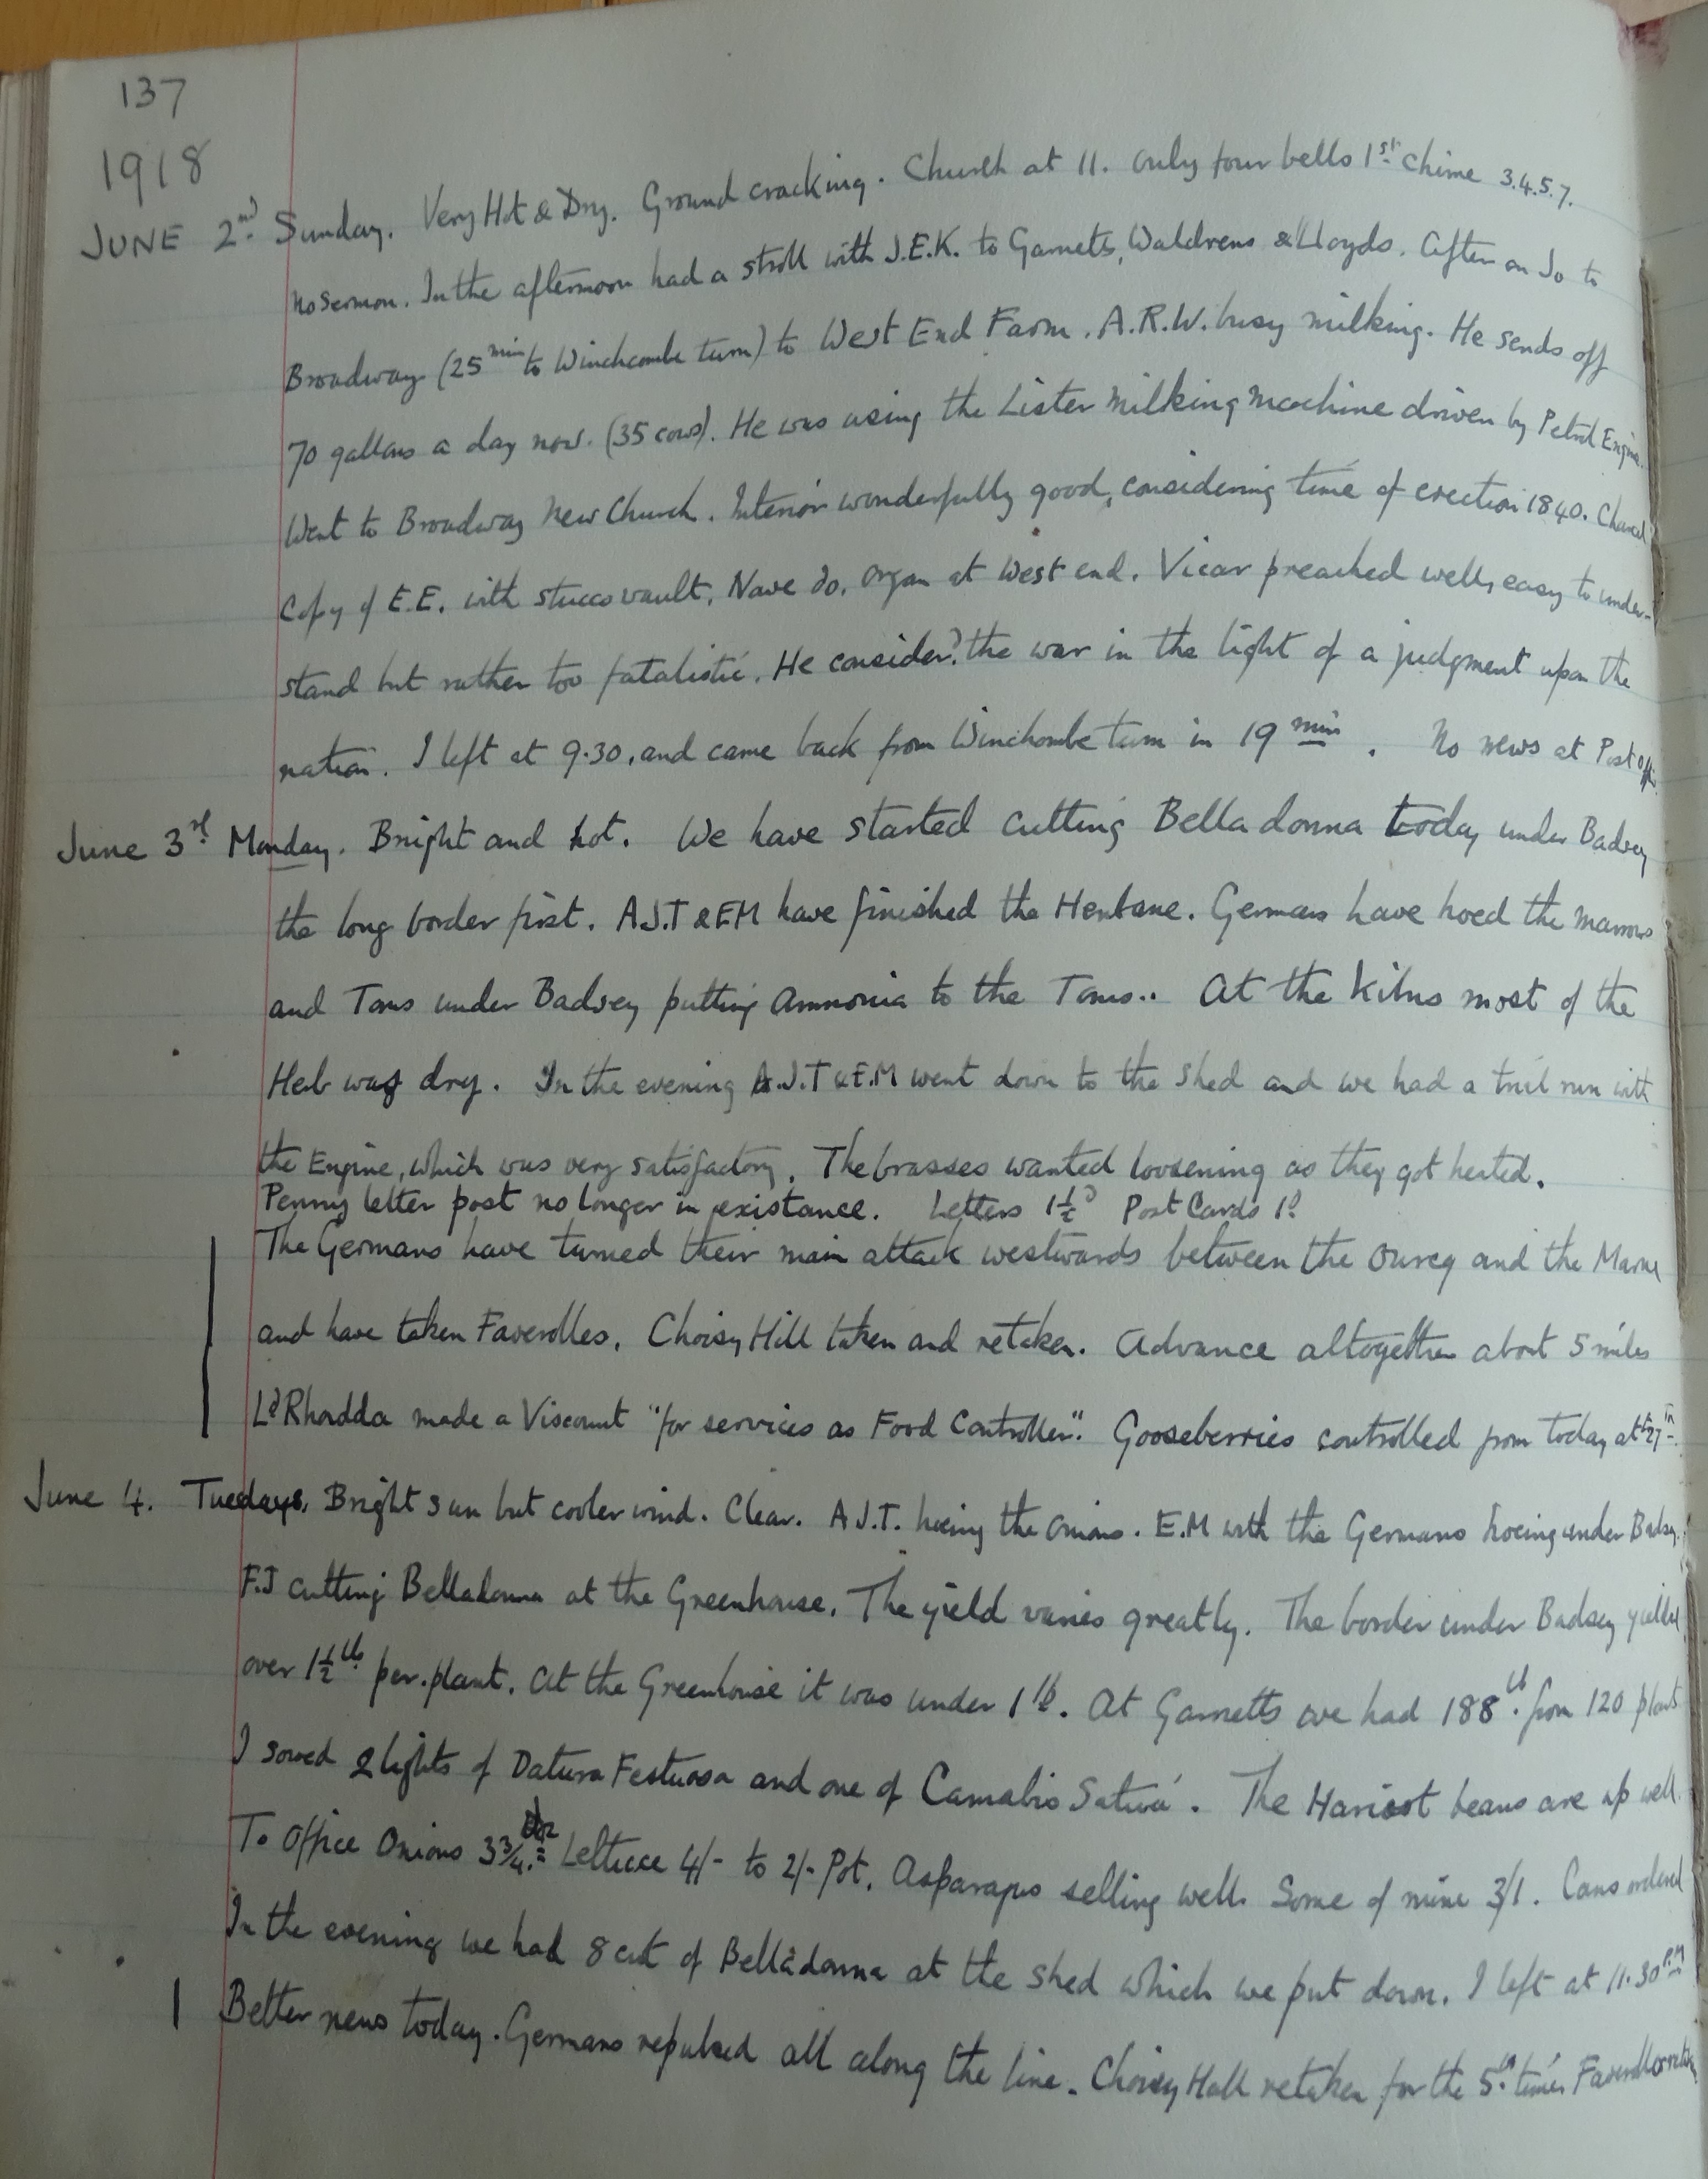 137
1918
JUNE 2nd Sunday. Very Hot & Dry. Ground cracking. Church at 11. Only four bells 1st Chime 3.4.5.7.
No sermon. In the afternoon had a stroll with J.E.K. to Garnetts, Waldrens & Lloyds. After on Jo to
Broadway (25 min to Winchcombe turn) to West End Farm. A.R.W. busy milking. He sends off
70 gallons a day now. (35 cows). He was using the Lister Milking Machine driven by Petrol Engine.
Went to Broadway New Church. Interior wonderfully good, considering time of erection 1840. Chancel
Copy of E.E. with stucco vault, Nave do. Organ at West end. Vicar preached well, easy to under-
stand but rather too fatalistic. He considerd the war in the light of a judgment upon the
nation. I left at 9.30. and came back from Winchombe turn in 19 min. No news at Post Offi.
June 3rd Monday. Bright and hot. We have started cutting Belladonna today under Badsey
the long border first. A.J.T & EM have finished the Henbane. Germans have hoed the marrows
and Toms under Badsey putting Ammonia to the Toms.. At the Kilns most of the
Herb was dry. In the evening A.J.T & E.M went down to the shed and we had a trial run with
the Engine, which was very satisfactory. The brasses wanted loosening as they got heated.
Penny letter post no longer in existance. Letters 1½d Post Cards 1d
The Germans have turned their main attack westwards between the Ourcq and the Marne
and have taken Faverolles. Choisy Hill taken and retaken. Advance altogether about 5 miles
Ld Rhondda made a Viscount "for services as Food Controller". Gooseberries controlled from today at
June 4. Tuesdays. Bright sun but cooler wind. Clear. A J.T. hoeing the onions. E.M with the Germans hoeing under Badsey.
F.J cutting Belladonna at the Greenhouse. The yield varies greatly. The border under Badsey yielded
over 1½ lb per plant. At the Greenhouse it was under 1 lb. At Garnetts we had 188 lb. from 120 plants
I sowed 2 lights of Datura Festuosa and one of Cannabis Sativa. The Haricot beans are up well.
To Office Onions 3¾ Lettuce 4/- to 2/- Pot. Asparagus selling well. Some of mine 3/1. Cans ordered
In the evening we had 8 cwt of Belladonna at the shed which we put down. I left at 11.30 P.M
Better news today. Germans repulsed all along the line. Choisy Hall retaken for the 5th time. Faverolles retaken